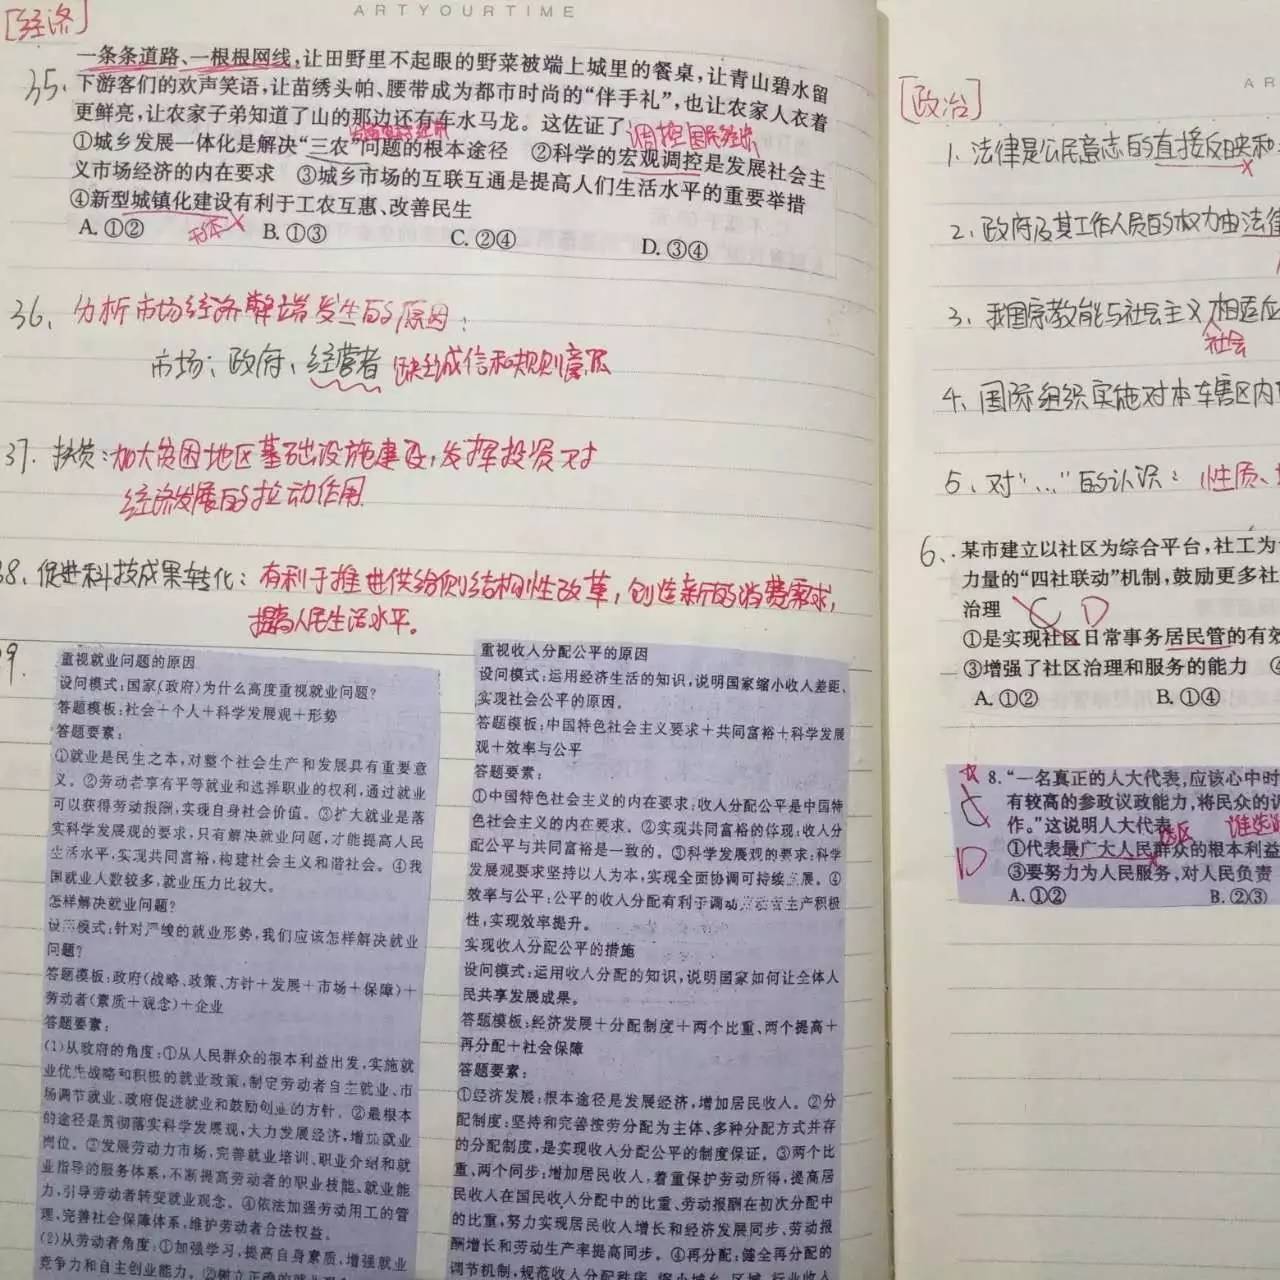 ARTYOURTIME
[经济]
35.
一条条道路、一根根网线,让田野里不起眼的野菜被端上城里的餐桌,让青山碧水留
下游客们的欢声笑语,让苗绣头帕、腰带成为都市时尚的“伴手礼”,也让农家人衣着
更鲜亮,让农家子弟知道了山的那边还有车水马龙。这佐证了
调控国民经济
①城乡发展一体化是解决“三农”问题的根本途径 ②科学的宏观调控是发展社会主
义市场经济的内在要求 ③城乡市场的互联互通是提高人们生活水平的重要举措
④新型城镇化建设有利于工农互惠、改善民生
A. ①② B. ①③ C. ②④ D. ③④
36、分析市场经济弊端发生的原因:
市场;政府、经营者 缺乏诚信和规则意识
37. 扶贫:加大贫困地区基础设施建设,发挥投资对
经济发展的拉动作用.
38、促进科技成果转化:有利于推进供给侧结构性改革,创造新的消费需求,
提高人民生活水平。
39.
重视就业问题的原因
设问模式:国家(政府)为什么高度重视就业问题?
答题模板:社会+个人+科学发展观+形势
答题要素:
①就业是民生之本,对整个社会生产和发展具有重要意
义。②劳动者享有平等就业和选择职业的权利,通过就业
可以获得劳动报酬,实现自身社会价值。③扩大就业是落
实科学发展观的要求,只有解决就业问题,才能提高人民
生活水平,实现共同富裕,构建社会主义和谐社会。④我
国就业人数较多,就业压力比较大。
怎样解决就业问题?
设问模式:针对严峻的就业形势,我们应该怎样解决就业
问题?
答题模板:政府(战略、政策、方针+发展+市场+保障)+
劳动者(素质+观念)+企业
答题要素:
(1)从政府的角度:①从人民群众的根本利益出发,实施就
业优先战略和积极的就业政策,制定劳动者自主就业、市
场调节就业、政府促进就业和鼓励创业的方针。②最根本
的途径是贯彻落实科学发展观,大力发展经济,增加就业
岗位。③发展劳动力市场,完善就业培训、职业介绍和就
业指导的服务体系,不断提高劳动者的职业技能、就业能
力,引导劳动者转变就业观念。④依法加强劳动用工的管
理,完善社会保障体系,维护劳动者合法权益。
(2)从劳动者角度:①加强学习,提高自身素质,增强就业
竞争力和自主创业能力。②树立正确的就业
重视收入分配公平的原因
设问模式:运用经济生活的知识,说明国家缩小收入差距、
实现社会公平的原因。
答题模板:中国特色社会主义要求+共同富裕+科学发展
观+效率与公平
答题要素:
①中国特色社会主义的内在要求:收入分配公平是中国特
色社会主义的内在要求。②实现共同富裕的体现:收入分
配公平与共同富裕是一致的。③科学发展观的要求:科学
发展观要求坚持以人为本,实现全面协调可持续发展。④
效率与公平:公平的收入分配有利于调动劳动者生产积极
性,实现效率提升。
实现收入分配公平的措施
设问模式:运用收入分配的知识,说明国家如何让全体人
民共享发展成果。
答题模板:经济发展+分配制度+两个比重、两个提高+
再分配+社会保障
答题要素:
①经济发展:根本途径是发展经济,增加居民收入。②分
配制度:坚持和完善按劳分配为主体、多种分配方式并存
的分配制度,是实现收入分配公平的制度保证。③两个比
重、两个同步:增加居民收入,着重保护劳动所得,提高居
民收入在国民收入分配中的比重、劳动报酬在初次分配中
的比重,努力实现居民收入增长和经济发展同步、劳动报
酬增长和劳动生产率提高同步。④再分配:健全再分配的
调节机制,规范收入分配秩序,缩小城乡、区域、行业收入
AR
[政治]
1. 法律是公民意志的直接反映和
2、政府及其工作人员的权力由法律
3、我国宗教能与社会主义相适应
社会
4、国际组织实施对本辖区内
5、对“…”的认识:性质、
6、
某市建立以社区为综合平台,社工为
力量的“四社联动”机制,鼓励更多社
治理 C D
①是实现社区日常事务居民管的有效
③增强了社区治理和服务的能力 ④
A. ①② B. ①④
8. “一名真正的人大代表,应该心中时
有较高的参政议政能力,将民众的
作。”这说明人大代表
选区
①代表最广大人民群众的根本利益
③要努力为人民服务,对人民负责
A. ①② B. ②③
D